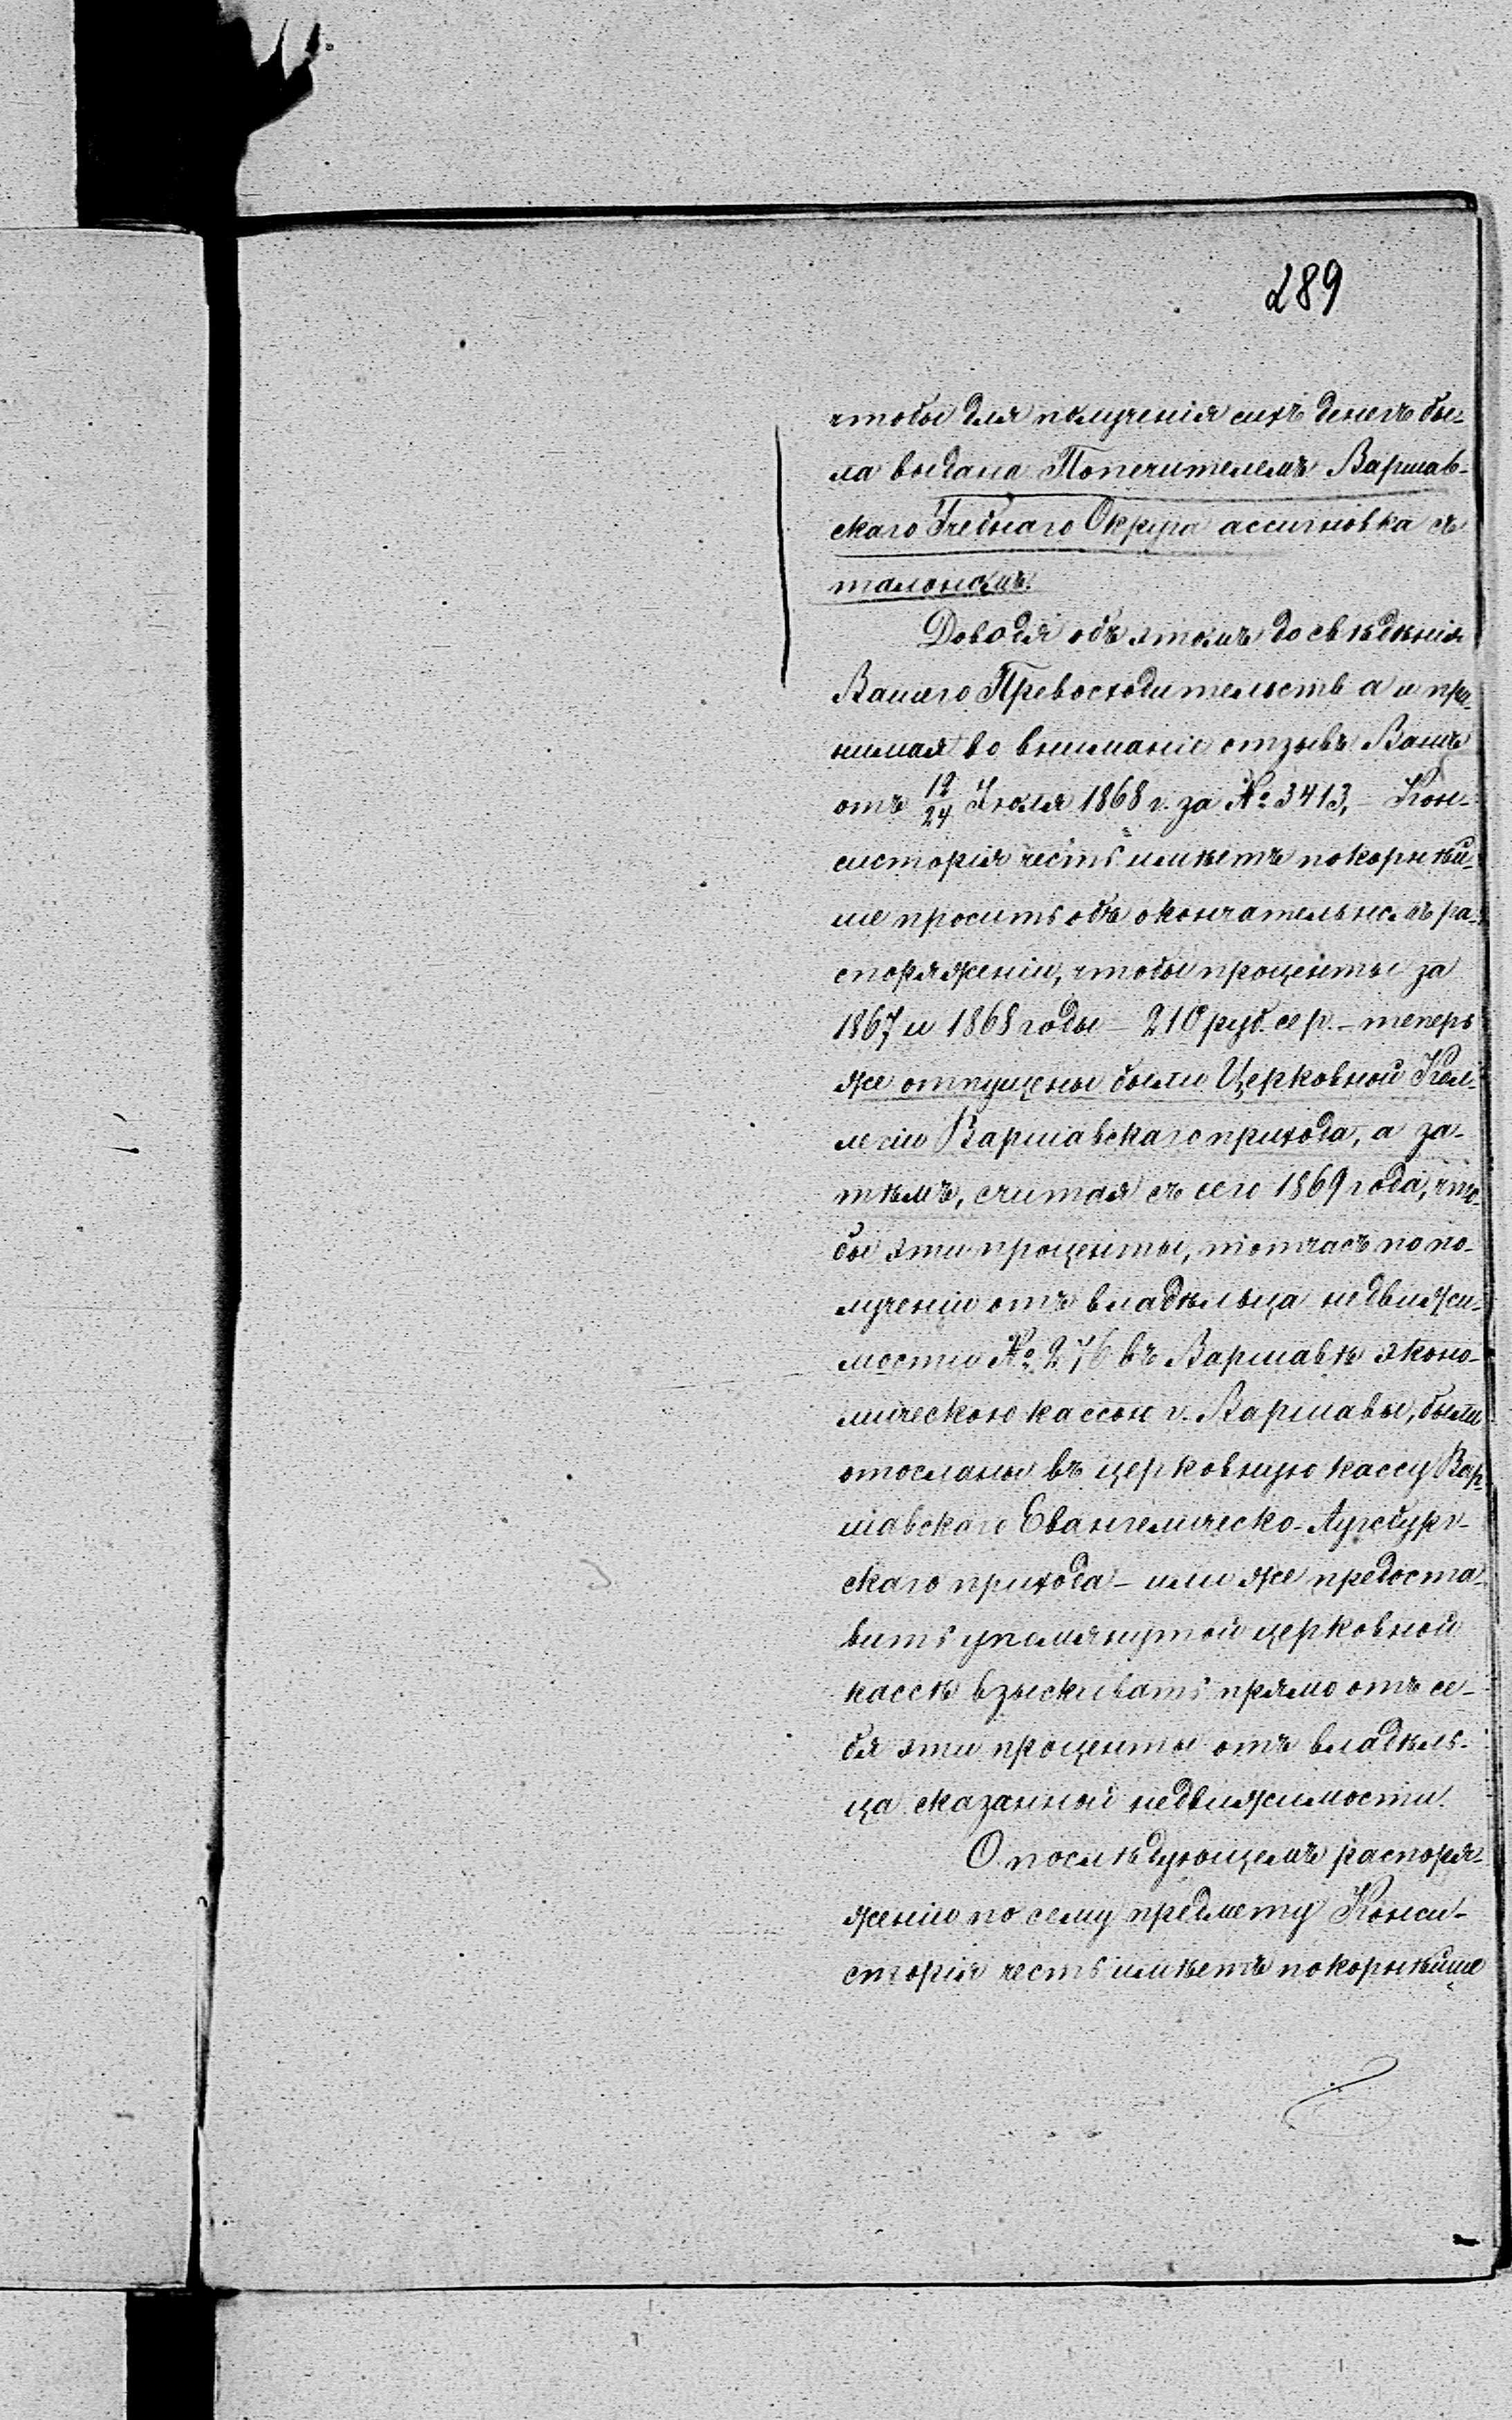 289
чтобы для полученія сихъ денегъ бы-
ла выдана Попечителемъ Варшав-
скаго Учебнаго Округа ассигновка съ
талономъ.
Доводя объ этомъ до свѣдѣнія
Вашего Превосходительства и при-
нимая во вниманіе отзывъ Вашъ
отъ 12/24 Іюля 1868 г. за № 3413, - Кон-
систорія честь имѣетъ покорнѣй-
ше просить объ окончательномъ ра-
споряженіи, чтобы проценты за
1867 и 1868 годы - 210 руб. сер. - теперь
же отпущены были Церковной Кол-
легіи Варшавскаго прихода, а за-
тѣмъ, считая съ сего 1869 года, что-
бы эти проценты, тотчасъ по по-
лученіи отъ владѣльца недвижи-
мости № 276 въ Варшавѣ эконо-
мическою кассою г. Варшавы, были
отосланы въ церковную кассу Вар-
шавскаго Евангелическо-Аугсбург-
скаго прихода - или же предоста-
вить упомянутой церковной
кассѣ взыскивать прямо отъ се-
бя эти проценты отъ владѣль-
ца сказанной недвижимости.
О послѣдующемъ распоря-
женіи по сему предмету Конси-
сторія честь имѣетъ покорнѣйше